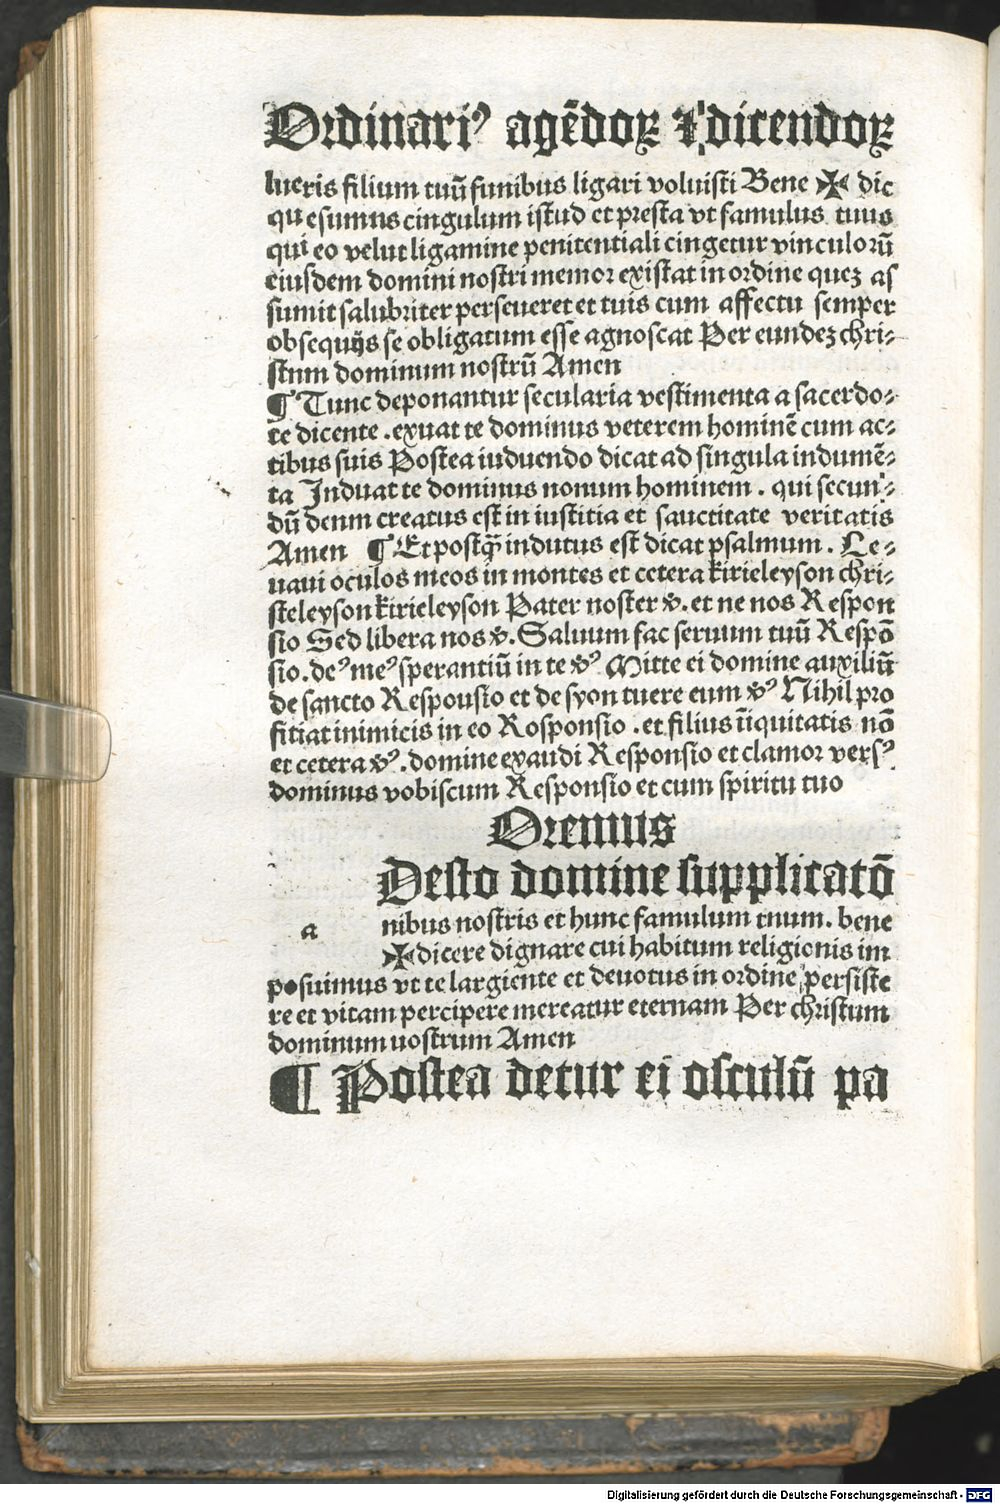 Ordinariꝰ agēdoꝝ ⁊ dicendoꝝ
lueris filium tuū funibus ligari voluisti Bene ✠ dic
quesumus cingulum istud et presta vt famulus tuus
qui eo velut ligamine penitentiali cingetur vinculorū
eiusdem domini nostri memor existat in ordine quez as
sumit salubriter perseueret et tuis cum affectu semper
obsequijs se obligatum esse agnoscat Per eundez chri-
stum dominum nostrū Amen
¶ Tunc deponantur secularia vestimenta a sacerdo-
te dicente .exuat te dominus veterem hominē cum ac-
tibus suis Postea iuduendo dicat ad singula indumē-
ta Induat te dominus nouum hominem . qui secun-
dū deum creatus est in iustitia et sauctitate veritatis
Amen ¶ Et postꝙ̄ indutus est dicat psalmum . Le-
uaui oculos meos in montes et cetera kirieleyson chri-
steleyson kirieleyson Pater noster ꝟ. et ne nos Respon
sio Sed libera nos ꝟ. Saluum fac seruum tuū Respō
sio. deꝰ meꝰ sperantiū in te ꝟꝰ Mitte ei domine auxiliū
de sancto Respousio et de syon tuere eum ꝟꝰ Nihil pro
fitiat inimicis in eo Rosponsio . et filius īiquitatis nō
et cetera ꝟꝰ. domine exaudi Responsio et clamor versꝰ
dominus vobiscum Responsio et cum spiritu tuo
Oremus
a
Desto domine supplicatō
nibus nostris et hunc famulum tnum. bene
✠ dicere dignare cui habitum religionis im
posuimus vt te largiente et deuotus in ordine persiste
re et vitam percipere mereatur eternam Per christum
dominum uostrum Amen
¶ Postea detur ei osculū pa
Digitalisierung gefördert durch die Deutsche Forschungsgemeinschaft - DFG